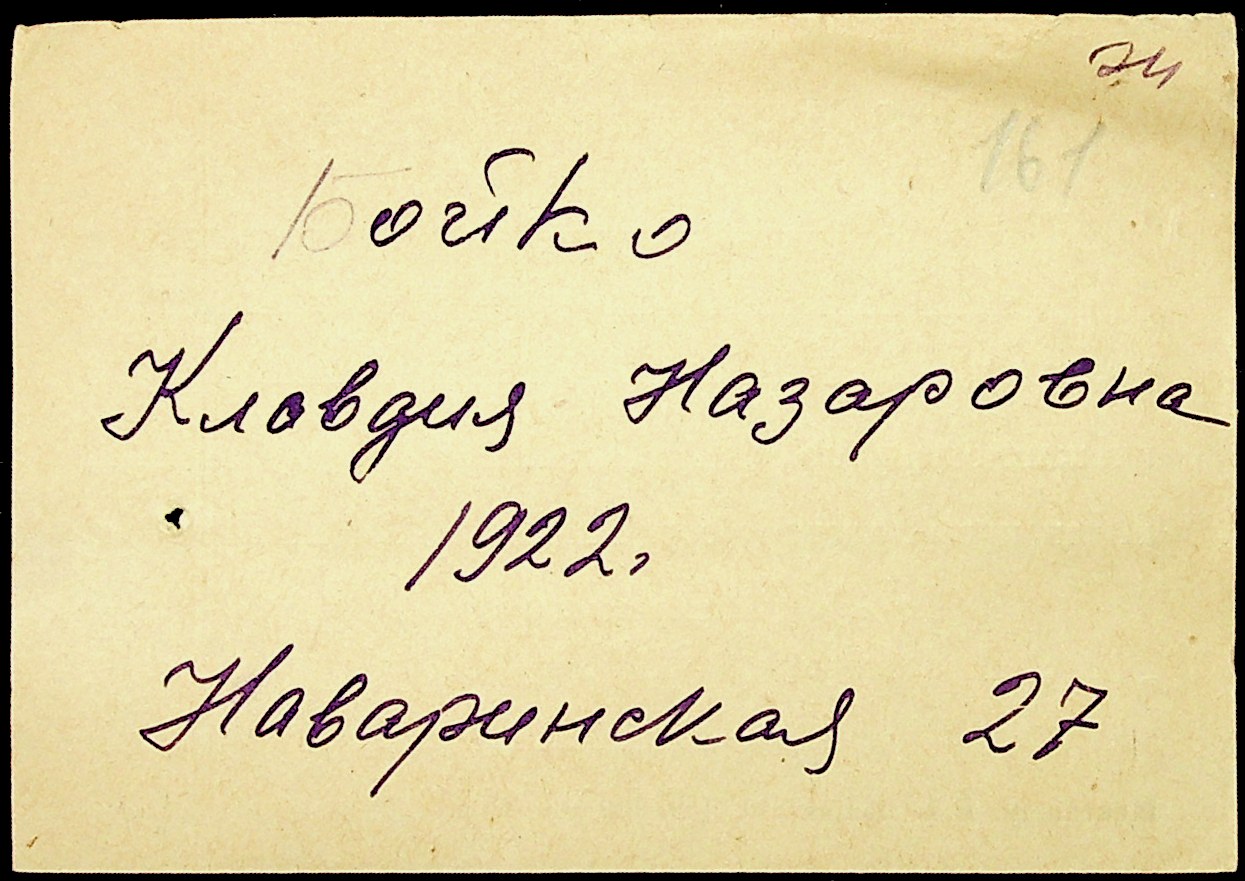 161
Бойко
Клавдия Назаровна
1922г
Наваринская 27